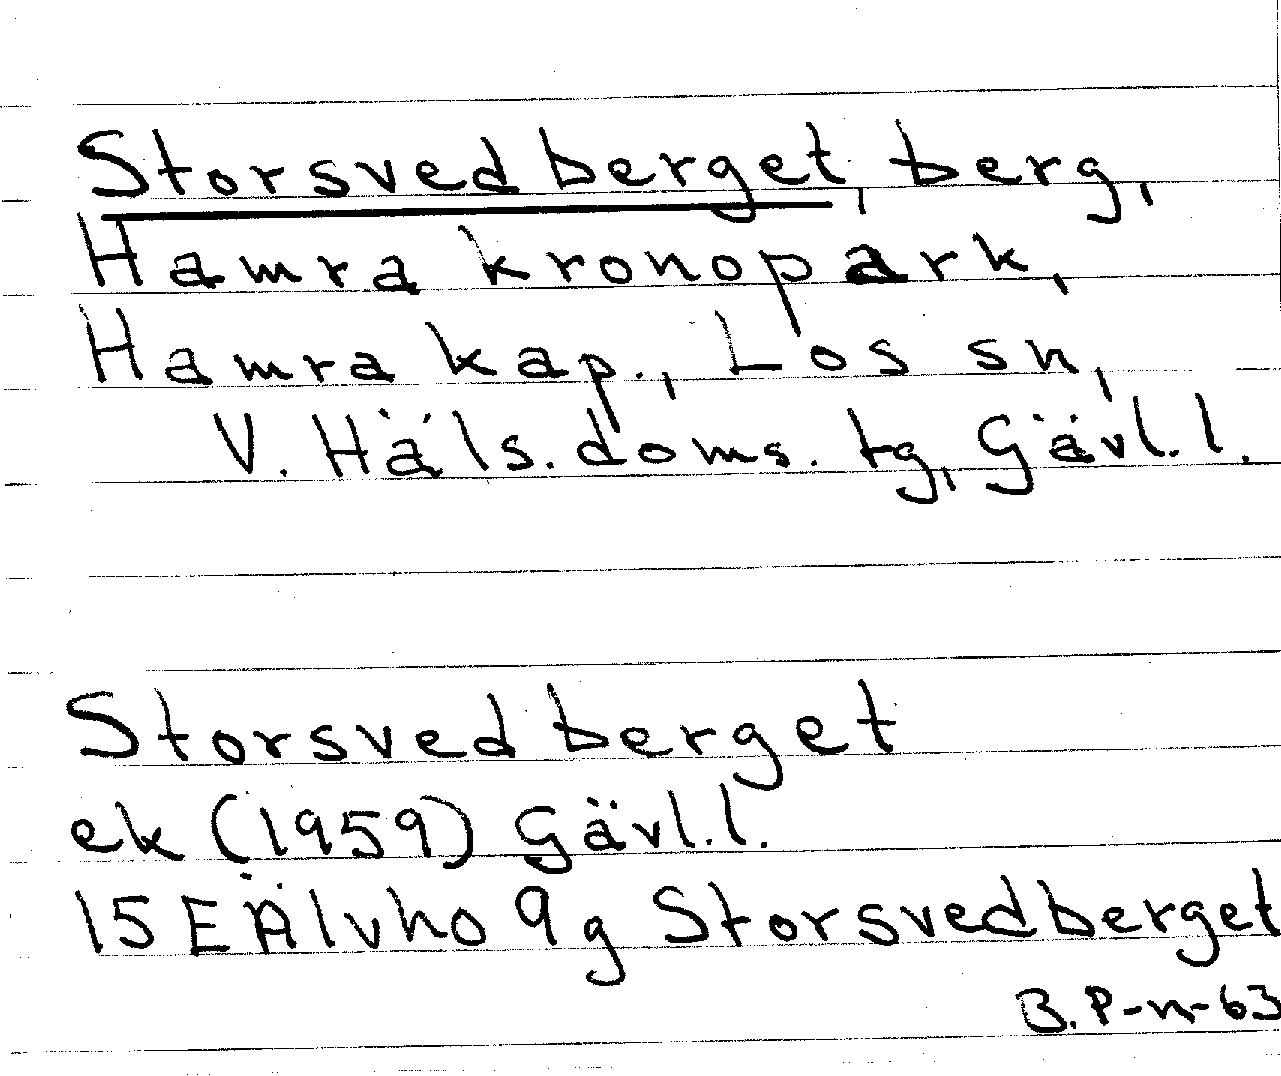 Storsvedberget, berg,
Hamra kronopark,
Hamra kap., Los sn,
V. Häls. doms. tg, Gävl. l.
Storsvedberget
ek (1959) Gävl. l.
15 E Älvho 9g Storsvedberget
B. P-n-63